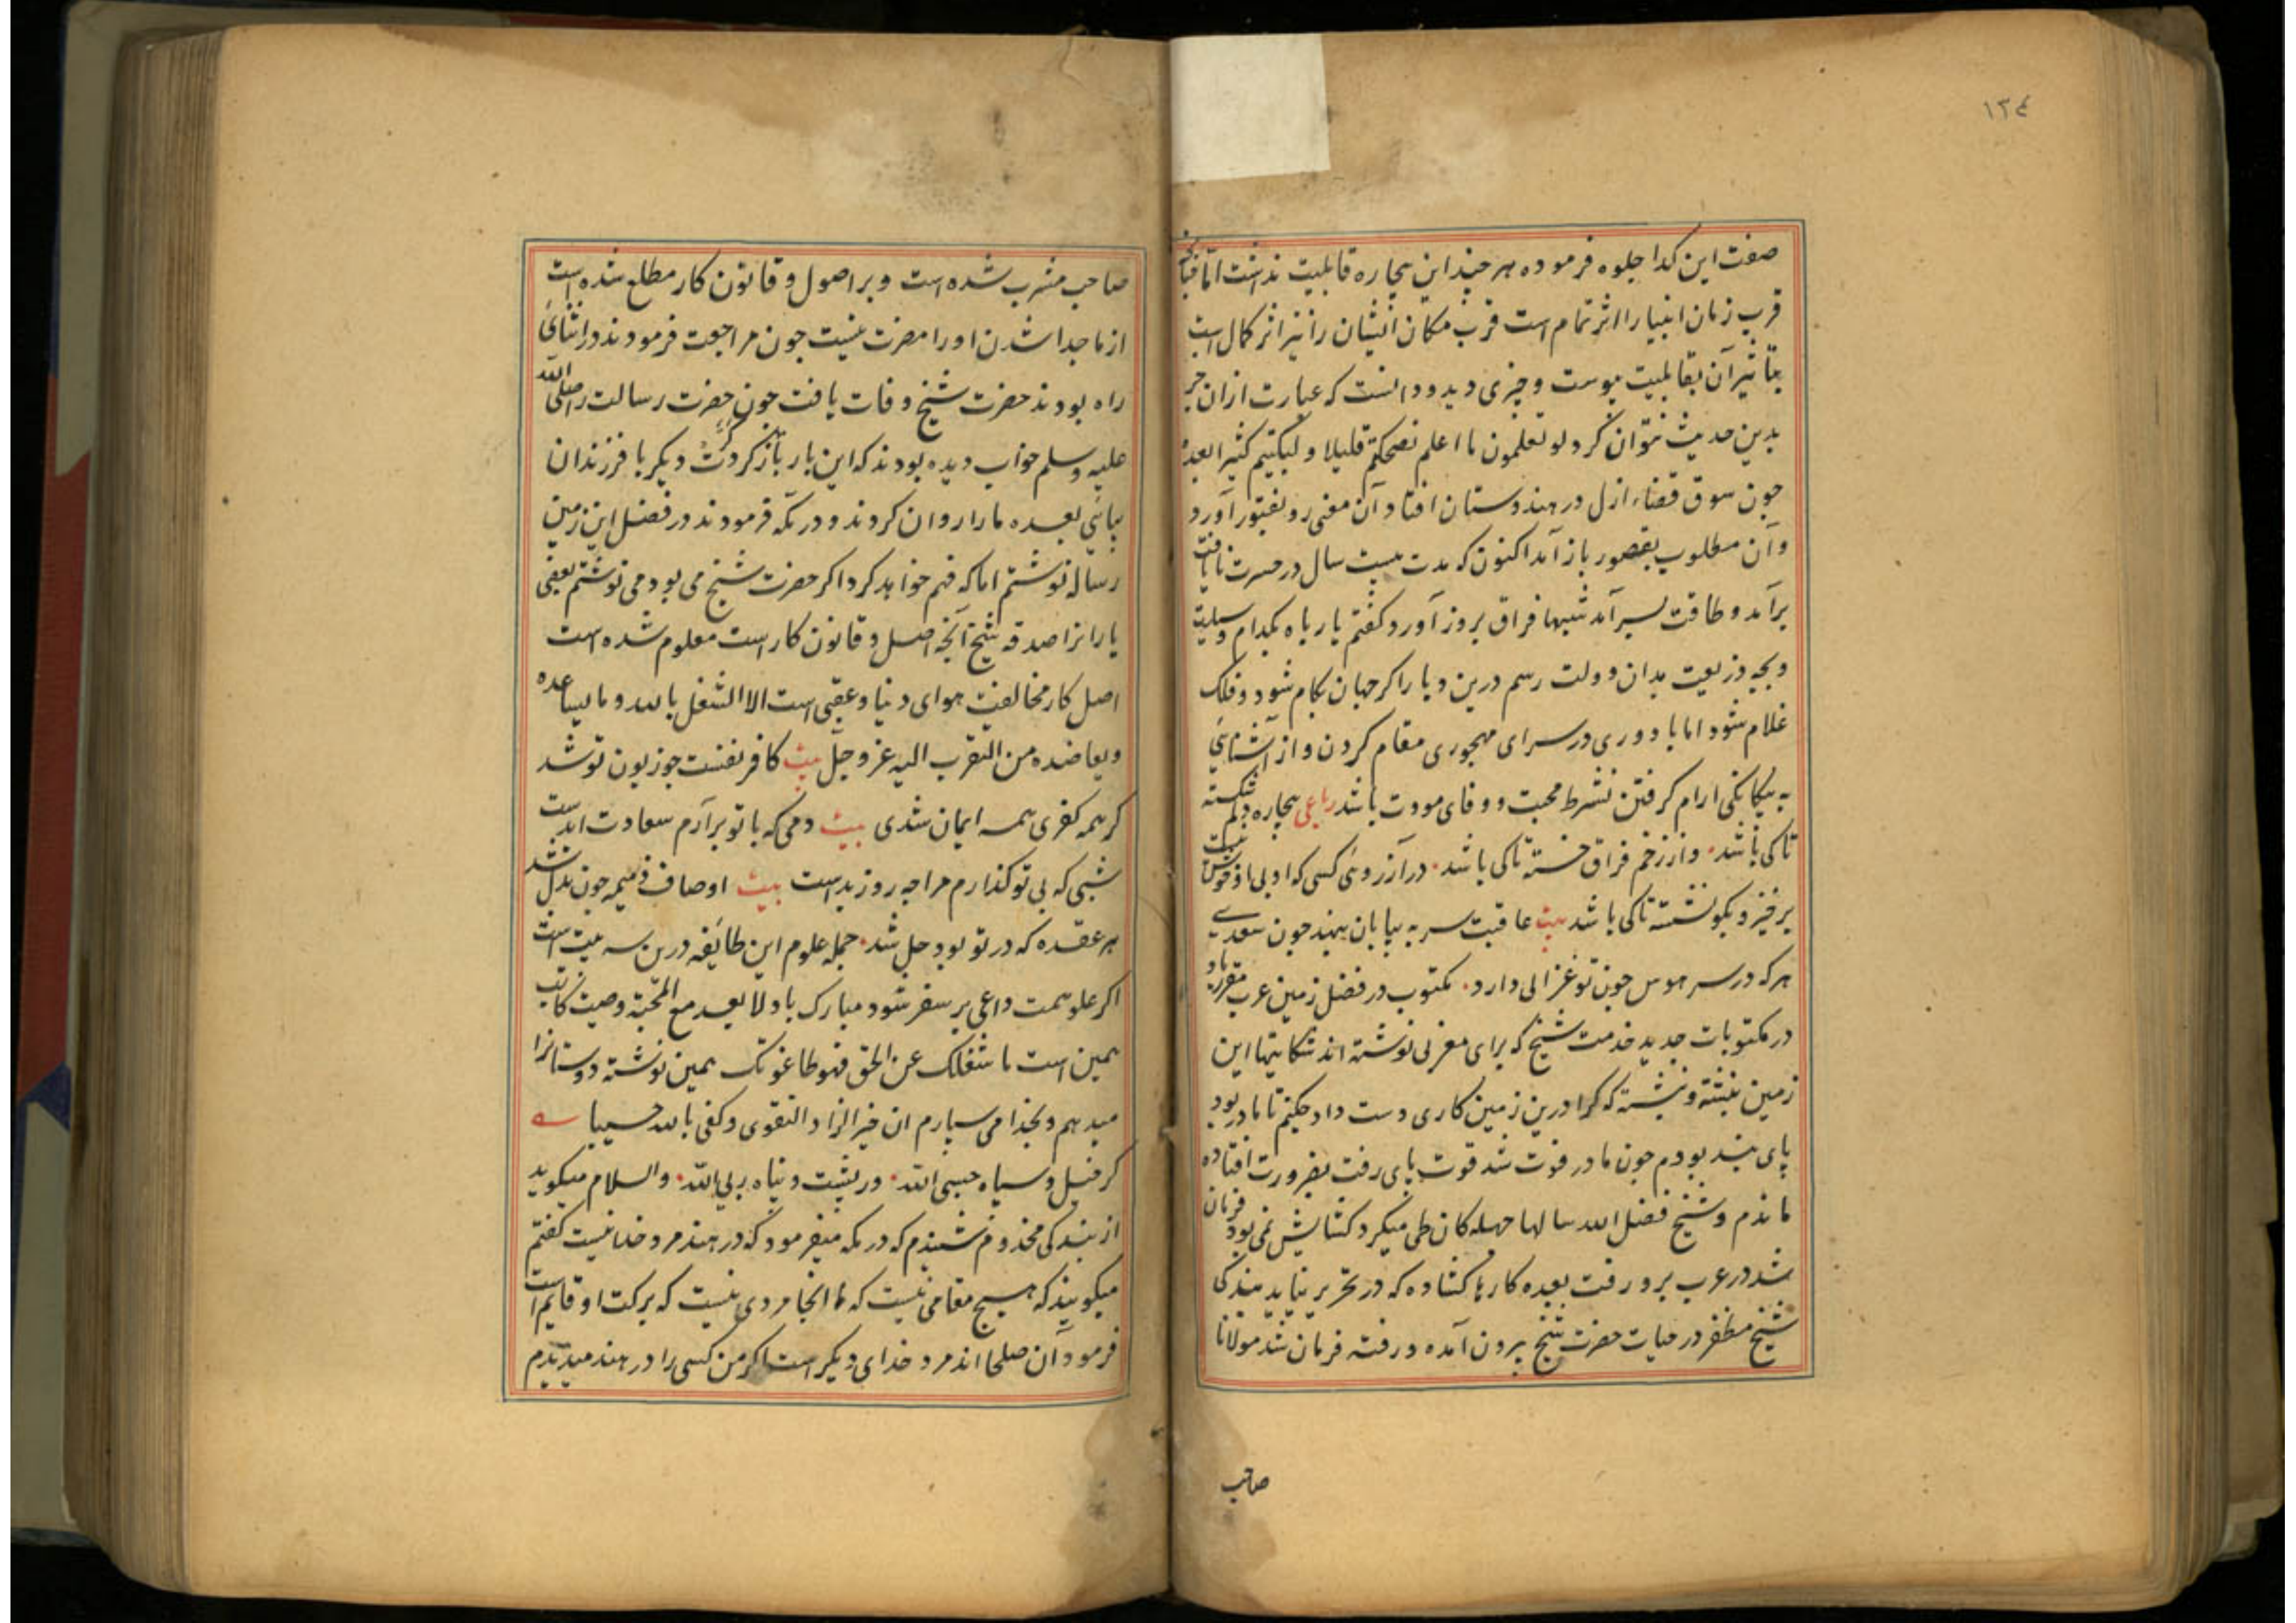 ١٣٤
صفت این کدا جلوه فرموده هر چند این بیچاره قابلیت نداشت اما چنانکه
قرب زمان انبیا را اثر تمام است قرب مکان ایشان را نیز اثر کمال است
بتاثیر آن بقابلیت پیوست و چیزی دید و دانست که عبارت ازان جز
بدین حدیث نتوان کرد لو تعلمون ما اعلم لضحکتم قلیلا و لبکیتم کثیرا بعده
چون سوق قضاء ازل در هندوستان افتاد آن معنی رو بفتور آورد
و آن مطلوب بقصور باز آمد اکنون که مدت بیست سال در حسرت نایافت
برآمد و طاقت بسر آمد شبها فراق بروز آورد گفتم یارباه بکدام وسیلت
و بچه ذریعت بدان دولت رسم درین دیار اکر جهان بکام شود و فلک
غلام شود اما با دوری در سرای مهجوری مقام کردن و از آشنائی
به بیکانکی ارام کرفتن نشرط محبت و وفای مودت باشد رباعی بیچاره دلم شکسته
تاکی باشد . و از زخم فراق خسته تاکی باشد . در آرزوئی کسی که او بی او خوش نیست
برخیز و بکو نشسته تاکی باشد بیت عاقبت سر به بیابان بنهد چون سعدی
هرکه در سر هوس چون تو غزالی دارد . مکتوب در فضل زمین عرب مقرر باد
در مکتوبات جدید خدمت شیخ که برای مغربی نوشته اند شکایتها این
زمین نبشته و نبشته که کرا درین زمین کاری دست داد چکنم تا مادر بود
پای بند بودم چون مادر فوت شد قوت پای رفت بضرورت افتاده
ماندم و شیخ فضل الله سالها چهله کان طی میکرد کشایش نمی بود فرمان
شد در عرب برو رفت بعده کارها کشاده که در تحریر نیاید بندکی
شیخ مظفر در حیات حضرت شیخ برون آمده و رفته فرمان شد مولانا
صاحب
صاحب مشرب شده است و بر اصول و قانون کار مطلع شده است
از ما جدا شدن او را مضرت نیست چون مراجعت فرمودند در اثنائی
راه بودند حضرت شیخ وفات یافت چون حضرت رسالت را صلی الله
علیه و سلم خواب دیده بودند که این بار باز کرد دیکر با فرزندان
بیائی بعده ما را روان کردند و در مکه فرمودند در فضل این زمین
رساله نوشتم اما که فهم خواهد کرد اکر حضرت شیخ می بود می نوشتم بعضی
یارانرا صدقه شیخ آنچه اصل و قانون کار است معلوم شده است
اصل کار مخالفت هوای دنیا و عقبی است الا الشغل بالله و ما یساعده
و یعاضده من التقرب الیه عز و جل بیت کافر نفست چو زبون تو شد
کر همه کفری همه ایمان شدی بیت دمی که با تو برآرم سعادت ابدست
شبی که بی تو کذارم مرا چه روز بدست بیت اوصاف ذمیمه چون بدل شد
هر عقده که در تو بود حل شد . جمله علوم این طائفه درین سه بیت است
اکر علو همت داعی بر سفر شود مبارک باد لا بعد مع المحبة وصیت کاتب
همین است ما شغلک عن الحق فهو طاغوتک همین نوشته دوستانرا
میدهم و بخدا می سپارم ان خیر الزاد التقوی و کفی بالله حسیبا
کر فیل و سپاه حسبی الله . ور پشت و پناه ربی الله . والسلام میکوید
از بندکی مخدوم شنیدم که در مکه میفرمود که در هند مرد خدا نیست گفتم
میکویند که هیچ مقامی نیست که ما انجا مردی نیست که برکت او قایم است
فرمود آن صلحا اند مرد خدای دیکر است اکر من کسی را در هند میدیدم